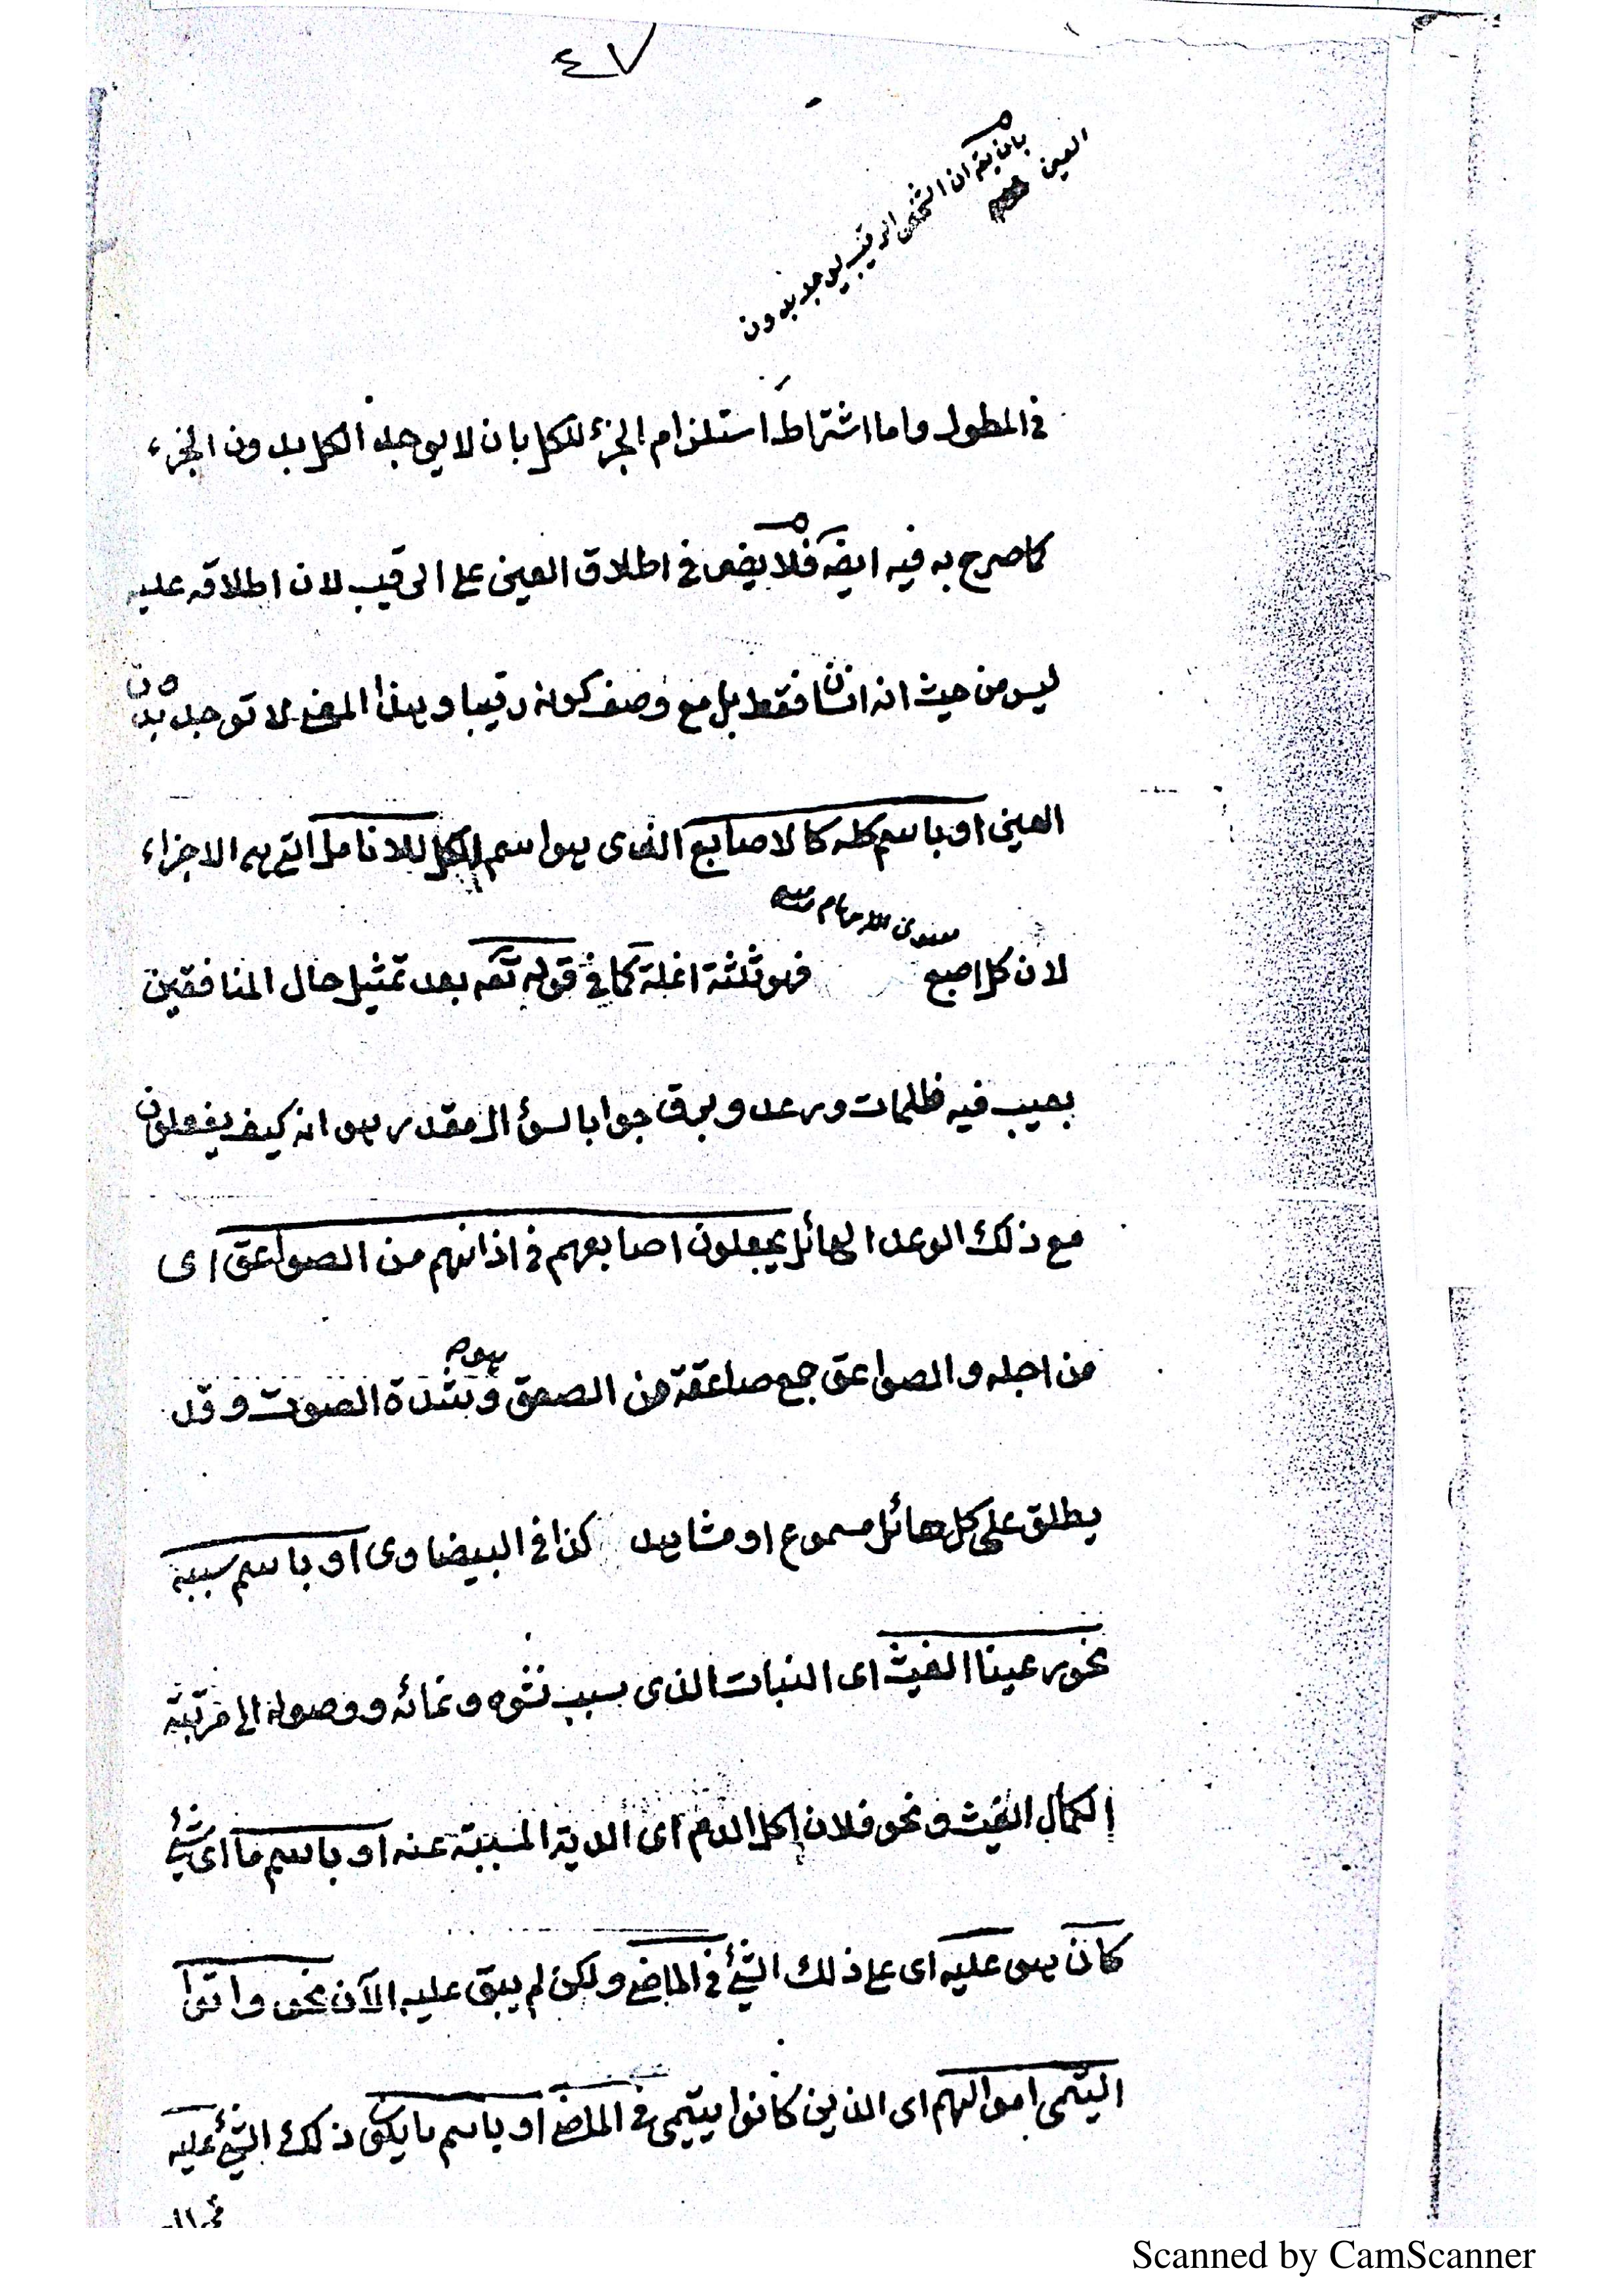 ٤٧
بان يقم ان الشخص الرقيب يوجد بدون
العين
فى المطول واما اشتراط استلزام الجزء للكل بان لا يوجد الكل بدون الجزء
كما صرح به فيه ايضه فلا يضر فى اطلاق العين على الرقيب لان اطلاقه عليه
ليس من حيث انه انسان فقط بل مع وصف كونه رقيبا وبهذا المعنى لا توجد بدون
العين او باسم كله كالاصابع الذى هو اسم الكل للانامل التى هى الاجزاء
سوى الابهام منه
لان كل اصبع فهو ثلثة انملة كما فى قوله تعه بعد تمثيل حال المنافقين
بصيب فيه ظلمات ورعد وبرق جوابا لسؤال مقدر هو انه كيف يفعلون
مع ذلك الرعد الهائل يجعلون اصابعهم فى اذانهم من الصواعق اى
من اجله والصواعق جمع صاعقة من الصعق وهو شدة الصوت وقد
يطلق على كل هائل مسموع او مشاهد كذا فى البيضاوى او باسم سببه
نحو رعينا الغيث اى النبات الذى سبب نشوه ونمائه ووصوله الى مرتبة
الكمال الغيث ونحو فلان اكل الدم اى الدية المسببة عنه او باسم ما اى شئ
كان هو عليه اى على ذلك الشئ فى الماضى ولكن لم يبق عليه الآن نحو واتوا
اليتمى اموالهم اى الذين كانوا يتيمى فى الماضى او باسم ما يكون ذلك الشئ عليه